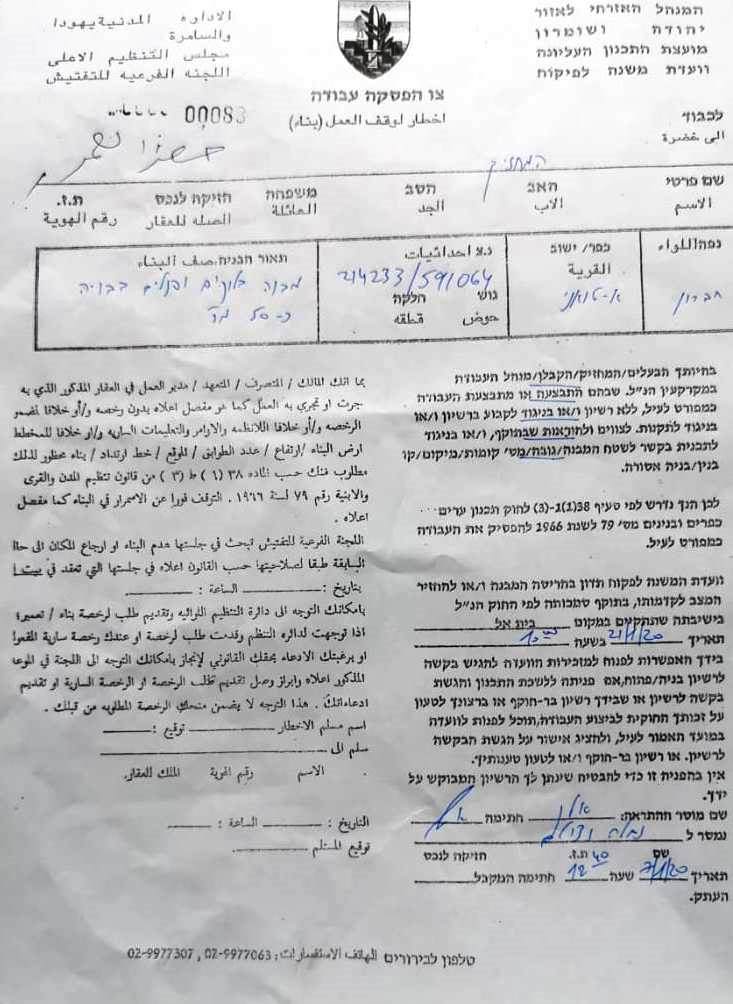 المنهל האזרחי לאזור
יהודה ושומרון
מועצת התכנון העליונה
וועדת משנה לפיקוח
الاداره المدنية يهودا
والسامرة
مجلس التنظيم الاعلى
اللجنه الفرعيه للتفتيش
צו הפסקה עבודה
اخطار لوقف العمل (بناء)
00083
לכבוד
الى حضرة
המחזיק
שם פרטי האב הסב משפחה חזיקה לנכס ת.ז.
الاسم الاب الجد العائلة الصله للعقار رقم الهوية
נפה/אללואء כפר/ישוב נ.צ احداثيات תאור הבניה.صف البناء
القرية
חברון א-טואני 214233/591064
גוש חלקה
حوض قطعه
מבנה בלוקים
בחיותך הבעלים/המחזיק/הקבלן/מנהל העבודה
במקרקעין הנ"ל. שבהם התבצעה או מתבצעת העבודה
כמפורט לעיל, ללא רשיון ו/או בניגוד לקבוע ברשיון ו/או
בניגוד לתקנות. לצווים ולהוראות שבתוקף, ו/או בניגוד
לתכנית בקשר לשטח המבנה/גובה/מס' קומות/מיקום/קו
בנין/בניה אסורה.
לכן הנך נדרש לפי סעיף 38(1)-(3) לחוק תכנון ערים
כפרים ובנינים מס' 79 לשנת 1966 להפסיק את העבודה
כמפורט לעיל.
וועדת המשנה לפקוח תדון בהריסת המבנה ו/או להחזיר
המצב לקדמותו, בתוקף סמכותה לפי החוק הנ"ל
בישיבתה שתתקיים במקום בית אל
תאריך 21/1/20 בשעה 10
בידך האפשרות לפנות למזכירות הוועדה להגיש בקשה
לרשיון בניה/פתוח, אם פניתה ללשכת התכנון והגשת
בקשה לרשיון או שבידך רשיון בר-תוקף או ברצונך לטעון
על זכותך החוקית לביצוע העבודה, תוכל לפנות לוועדה
במועד האמור לעיל, ולהציג אישור על הגשת הבקשה
לרשיון. או רשיון בר-תוקף ו/או לטעון טענותיך.
אין בהפניה זו כדי להבטיח שינתן לך הרשיון המבוקש על
ידך.
שם מוסר ההתראה: אלון חתימה
נמסר ל
שם ת.ז. חזיקה לנכס
תאריך 7/1/20 שעה 12 חתימה המקבל
העתק.
بما انك المالك / المتصرف / المتعهد / مدير العمل في العقار المذكور الذي به
جرت او تجري به العمل كما هو مفصل اعلاه بدون رخصه و/أو خلافا لمضمون
الرخصه و/أو خلافا للانظمه والاوامر والتعليمات الساريه و/او خلافا للمخطط
ارض البناء /ارتفاع / عدد الطوابق / الموقع / خط ارتداد / بناء محظور لذلك
مطلوب منك حسب الماده ٣٨ (٦) ط (٣) من قانون تنظيم المدن والقرى
والابنية رقم ٧٩ لسنة ١٩٦٦ . التوقف فورا عن الاستمرار في البناء كما مفصل
اعلاه .
اللجنة الفرعية للتفتيش تبحث في جلستها هدم البناء او ارجاع المكان الى
السابقة طبقا لصلاحيتها حسب القانون اعلاه في جلستها التي تعقد في
بتاريخ : الساعة :
بامكانك التوجه الى دائرة التنظيم اللوائيه وتقديم طلب لرخصة بناء / تعمير؛
اذا توجهت لدائره التنظم وقدمت طلب لرخصة او عندك رخصة سارية المفعول
او برغبتك الادعاء بحقك القانوني لإنجاز بامكانك التوجه الى اللجنة في
المذكور اعلاه وابراز وصل تقديم طلب الرخصة او الرخصة السارية او تقديم
ادعاءاتك . هذا التوجه لا يضمن منحك الرخصة المطلوبه من قبلك .
اسم مسلم الاخطار توقيع :
سلم الى
الاسم رقم الهوية الملك للعقار.
التاريخ : الساعة :
توقيع المستلم
טלפון לבירורים الهاتف الاستفسارات: 02-9977063 , 02-9977307